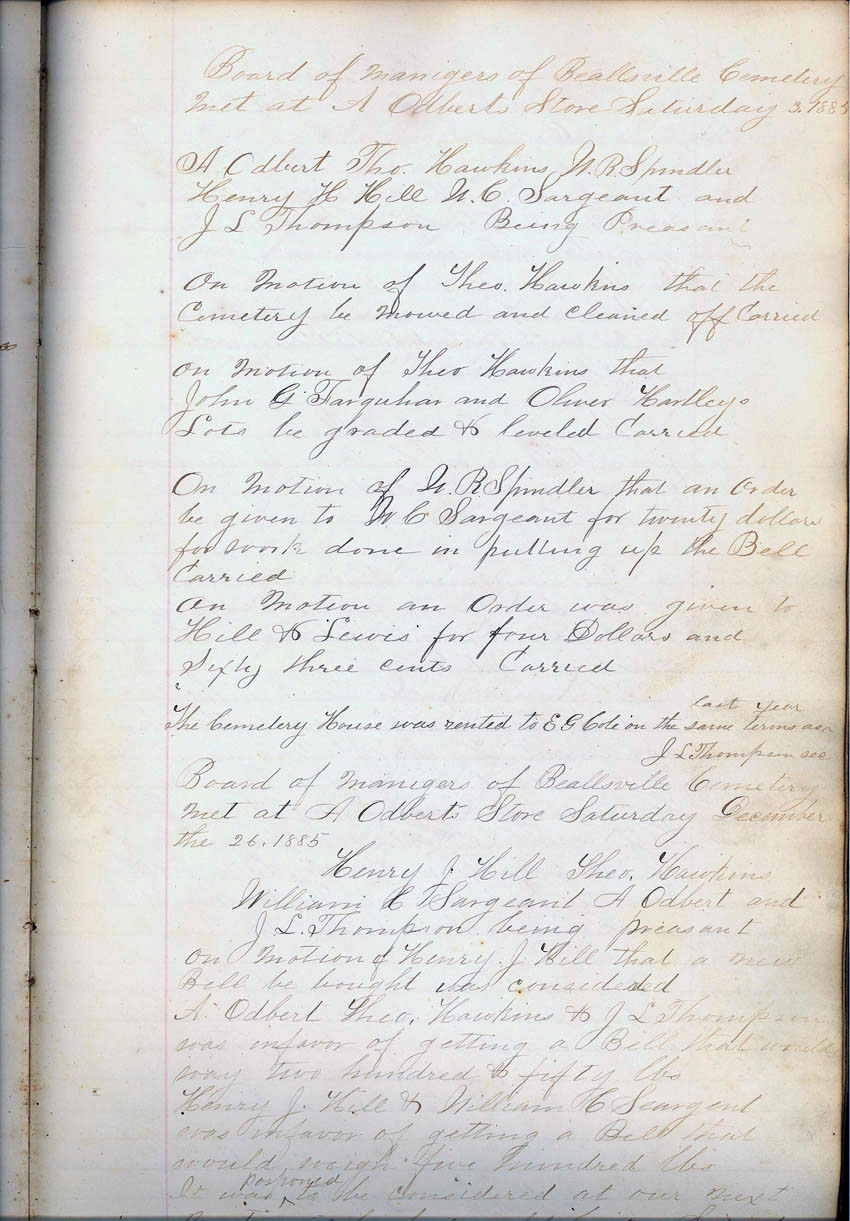 Board of Manigers of Beallsville Cemetery
Met at A Odberts Store Saturday 3. 1885
A Odbert Tho. Hawkins W. R Spindler
Henry H Hill W. C. Sargeant and
J L Thompson Being Preasant
On Motion of Theo. Hawkins that the
Cemetery be Mowed and cleaned off Carried
On Motion of Theo Hawkins that
John G Farquhar and Oliver Hartleys
Lots be graded & leveled Carried
On Motion of W. R Spindler that an Order
be given to W C Sargeant for twenty dollars
for work done in putting up the Bell
Carried
On Motion an Order was given to
Hill & Lewis for four Dollars and
Sixty three cents Carried
last year
The Cemetery House was rented to E G Cole on the same terms as
J L Thompson sec
Board of Manigers of Beallsville Cemetery
Met at A Odberts Store Saturday December
the 26. 1885
Henry J Hill Theo. Hawkins
William H Sargeant A Odbert and
J L. Thompson being preasant
On Motion of Henry J Hill that a new
Bell be bought was considered
A. Odbert Theo. Hawkins & J L Thompson
was infavor of getting a Bell that would
way two hundred & fifty lbs
Henry J. Hill & William H Seargent
was infavor of getting a Bell that
would weigh five hundred lbs
posponed
It was ^ to be considered at our next